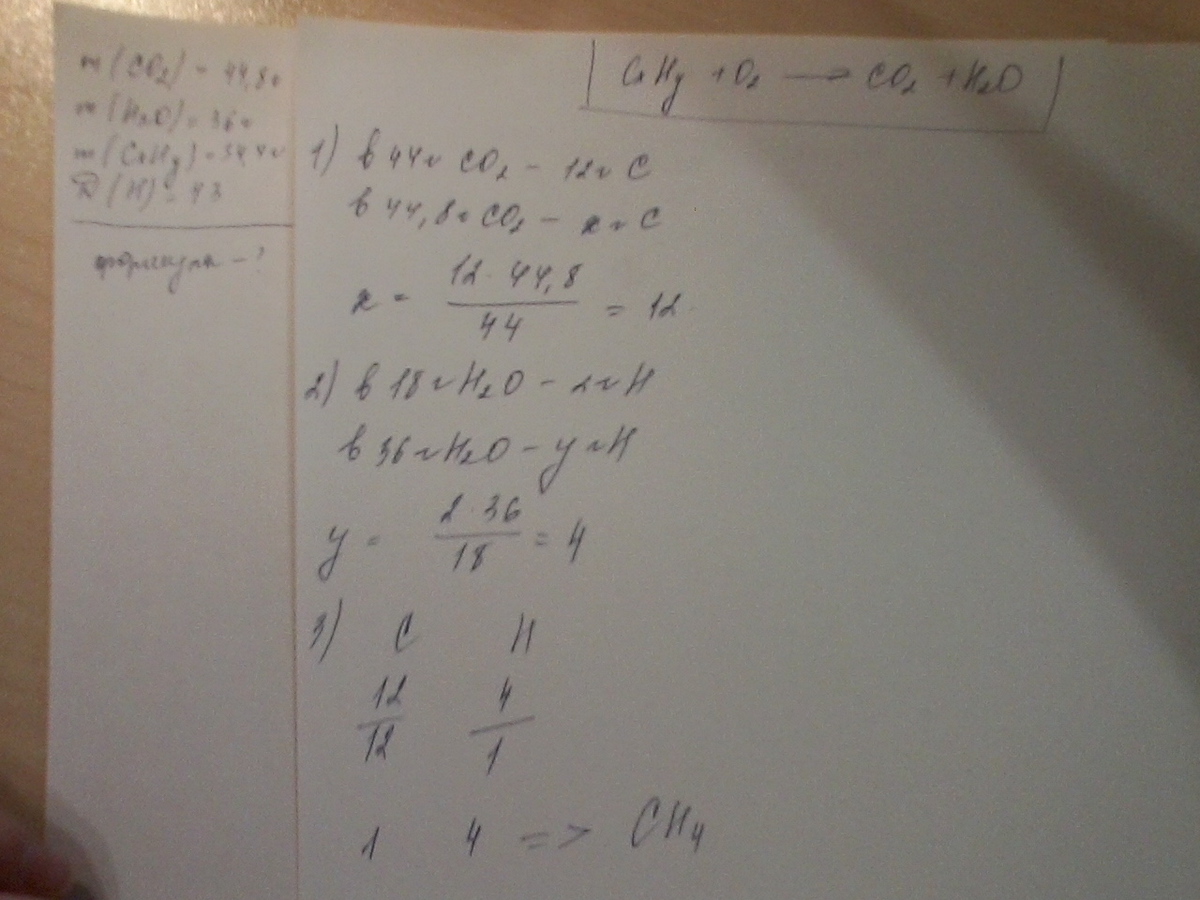 m(CO₂) = 44,8г
m(H₂O) = 36г
m(CxHy) = 34,4г
D(H) = 43
формула - ?
CxHy + O₂ → CO₂ + H₂O
1) в 44г CO₂ - 12г C
в 44,8г CO₂ - xг C
x = 12·44,8 / 44 = 12
2) в 18г H₂O - 2г H
в 36г H₂O - yг H
y = 2·36 / 18 = 4
3) C H
12/12 4/1
1 4 => CH₄